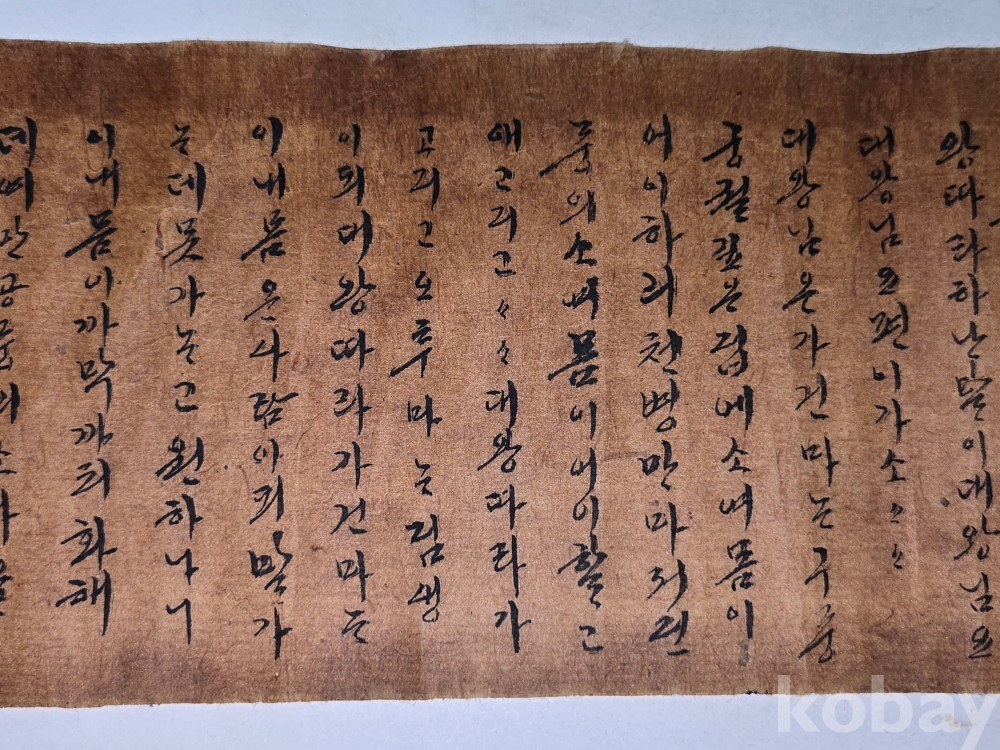 왕따라하난몸이대왕님으
대왕님으편이가소〃〃
대왕님은가건마는구중
궁궐깊은딥에소녀몸이
어이하리천병만마저런
중의소녀몸이어이할고
애고리고〃〃대왕따라가
고리고오후마는딤생
이되여왕따라가건마는
이내몸은사람이되말가
는데못가는고원하나니
이내몸이까막까티화해
kobay